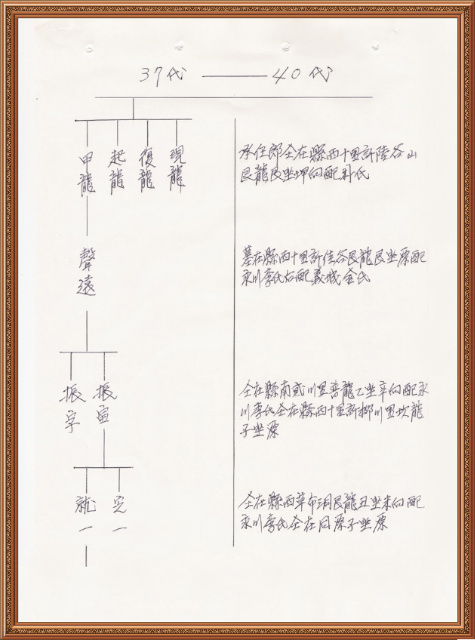 37代 —— 40代
甲龍 起龍 復龍 現龍
承仕郎仝在縣西十里許陵谷山
艮龍艮坐坤向配朴氏
聲遠
墓在縣西十里許佳谷艮龍艮坐原配
永川李氏右配義城金氏
振宇 振宙
仝在縣南 川里 龍乙坐辛向配永
川李氏仝在縣西十里許柳川里坎龍
子坐原
就一 完一
仝在縣西草布洞艮龍丑坐未向配
永川李氏仝在同原子坐原